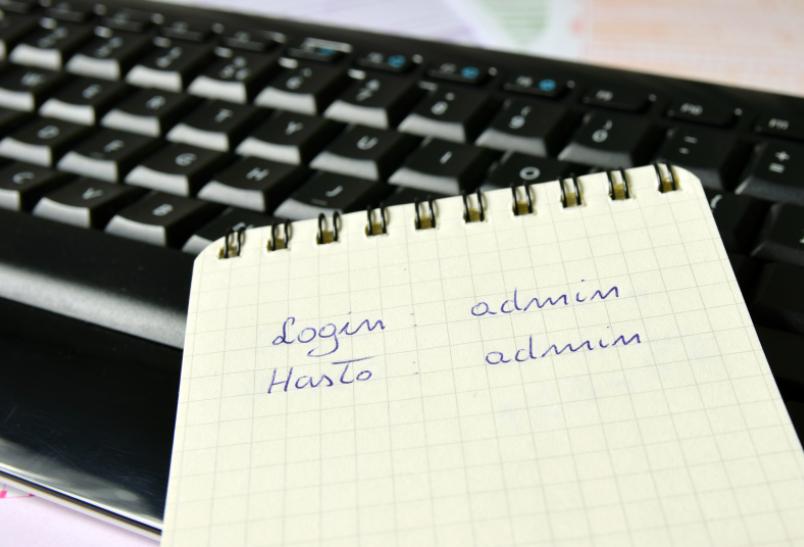 Login : admin
Hasło : admin